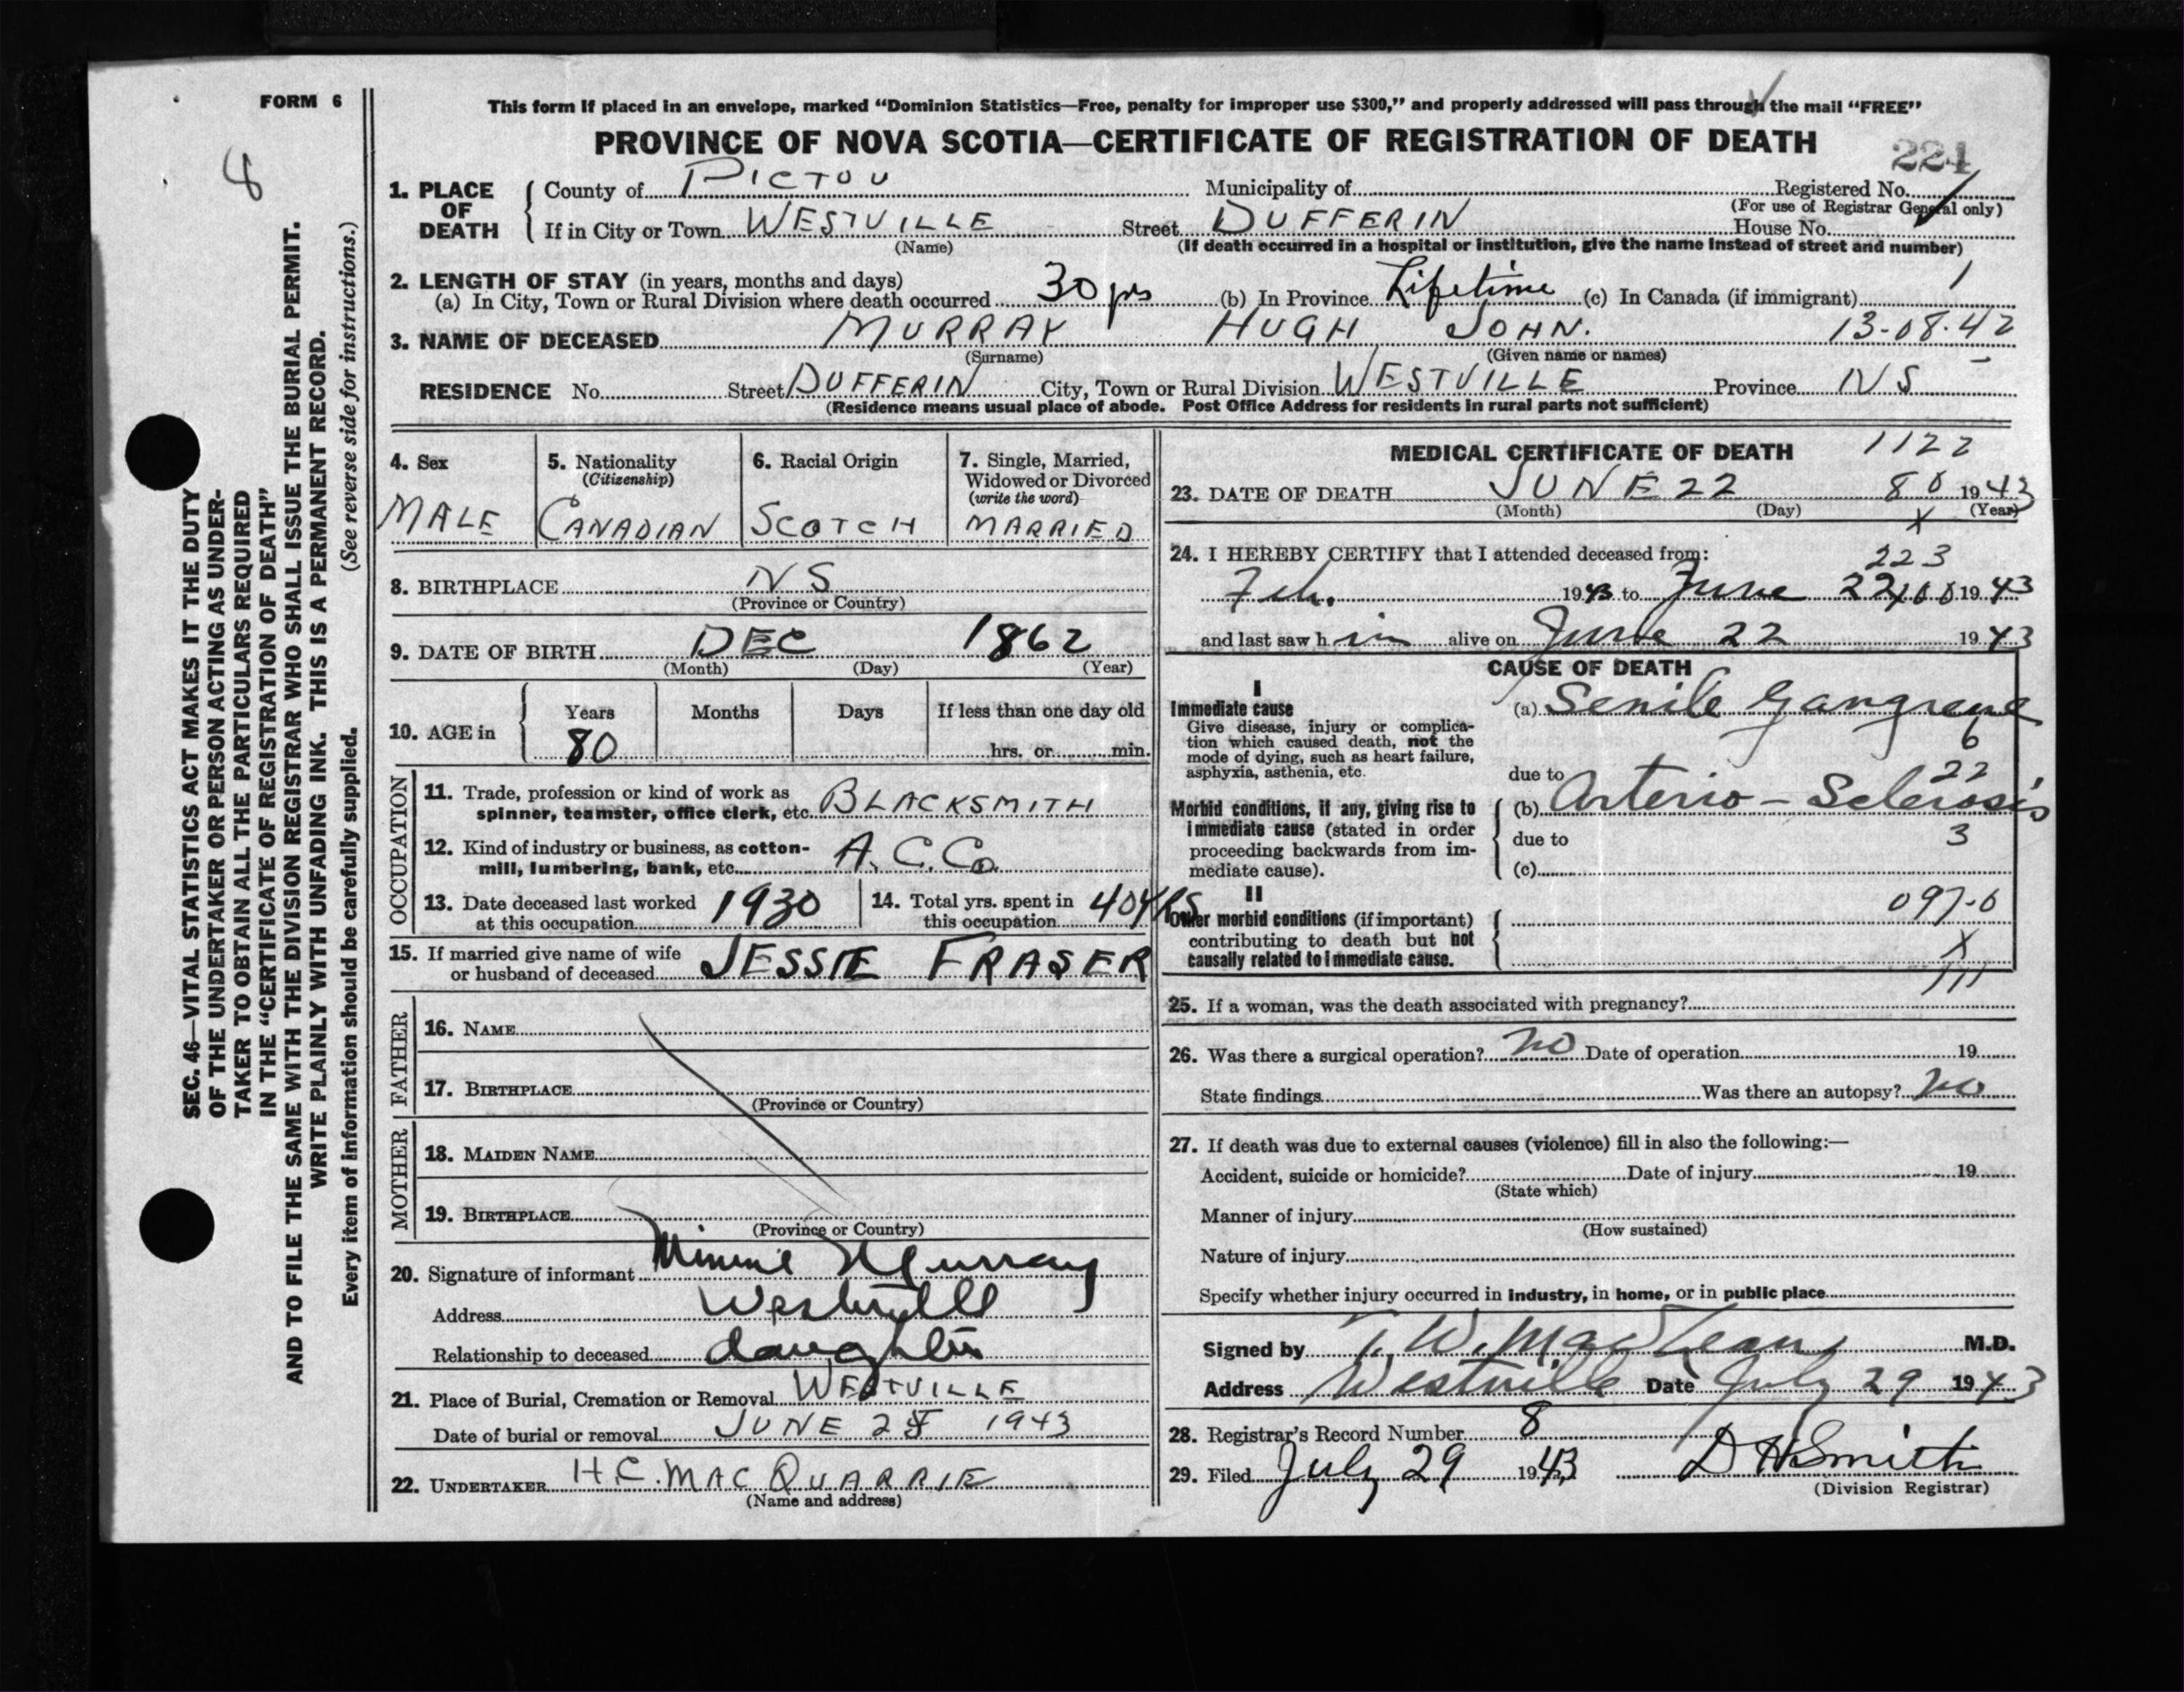 FORM 6
This form if placed in an envelope, marked “Dominion Statistics—Free, penalty for improper use $300,” and properly addressed will pass through the mail “FREE”
PROVINCE OF NOVA SCOTIA—CERTIFICATE OF REGISTRATION OF DEATH
224
8
SEC. 46—VITAL STATISTICS ACT MAKES IT THE DUTY
OF THE UNDERTAKER OR PERSON ACTING AS UNDER-
TAKER TO OBTAIN ALL THE PARTICULARS REQUIRED
IN THE “CERTIFICATE OF REGISTRATION OF DEATH”
AND TO FILE THE SAME WITH THE DIVISION REGISTRAR WHO SHALL ISSUE THE BURIAL PERMIT.
WRITE PLAINLY WITH UNFADING INK. THIS IS A PERMANENT RECORD.
Every item of information should be carefully supplied. (See reverse side for instructions.)
1. PLACE OF DEATH
County of PICTOU Municipality of Registered No.
(For use of Registrar General only)
If in City or Town WESTVILLE Street DUFFERIN House No.
(Name) (If death occurred in a hospital or institution, give the name instead of street and number)
2. LENGTH OF STAY (in years, months and days)
(a) In City, Town or Rural Division where death occurred 30 yrs (b) In Province Lifetime (c) In Canada (if immigrant) 1
3. NAME OF DECEASED MURRAY HUGH JOHN. 13-08-42
(Surname) (Given name or names)
RESIDENCE No. Street DUFFERIN City, Town or Rural Division WESTVILLE Province NS
(Residence means usual place of abode. Post Office Address for residents in rural parts not sufficient)
4. Sex
MALE
5. Nationality
(Citizenship)
CANADIAN
6. Racial Origin
SCOTCH
7. Single, Married,
Widowed or Divorced
(write the word)
MARRIED
8. BIRTHPLACE NS
(Province or Country)
9. DATE OF BIRTH DEC 1862
(Month) (Day) (Year)
10. AGE in Years Months Days If less than one day old
80 hrs. or min.
OCCUPATION
11. Trade, profession or kind of work as
spinner, teamster, office clerk, etc. BLACKSMITH
12. Kind of industry or business, as cotton-
mill, lumbering, bank, etc. A. C. Co.
13. Date deceased last worked
at this occupation 1930
14. Total yrs. spent in
this occupation 40 YRS
15. If married give name of wife
or husband of deceased JESSIE FRASER
FATHER
16. NAME
17. BIRTHPLACE
(Province or Country)
MOTHER
18. MAIDEN NAME
19. BIRTHPLACE
(Province or Country)
20. Signature of informant Minnie Murray
Address Westville
Relationship to deceased daughter
21. Place of Burial, Cremation or Removal WESTVILLE
Date of burial or removal JUNE 1943
22. UNDERTAKER H.C. MAC QUARRIE
(Name and address)
MEDICAL CERTIFICATE OF DEATH 1122
23. DATE OF DEATH JUNE 22 80 1943
(Month) (Day) (Year)
X
24. I HEREBY CERTIFY that I attended deceased from:
223
Feb. 1943 to June 22 100 1943
and last saw h im alive on June 22 1943
CAUSE OF DEATH
I
Immediate cause
Give disease, injury or complica-
tion which caused death, not the
mode of dying, such as heart failure,
asphyxia, asthenia, etc.
(a) Senile Gangrene
6
due to 22
Morbid conditions, if any, giving rise to
immediate cause (stated in order
proceeding backwards from im-
mediate cause).
(b) Arterio-Sclerosis
due to 3
(c)
II
Other morbid conditions (if important)
contributing to death but not
causally related to immediate cause.
097-0
X
111
25. If a woman, was the death associated with pregnancy?
26. Was there a surgical operation? no Date of operation 19
State findings Was there an autopsy? no
27. If death was due to external causes (violence) fill in also the following:—
Accident, suicide or homicide? Date of injury 19
(State which)
Manner of injury
(How sustained)
Nature of injury
Specify whether injury occurred in industry, in home, or in public place
Signed by T. W. MacLean M.D.
Address Westville Date July 29 1943
28. Registrar's Record Number 8
29. Filed July 29 1943 D H Smith
(Division Registrar)